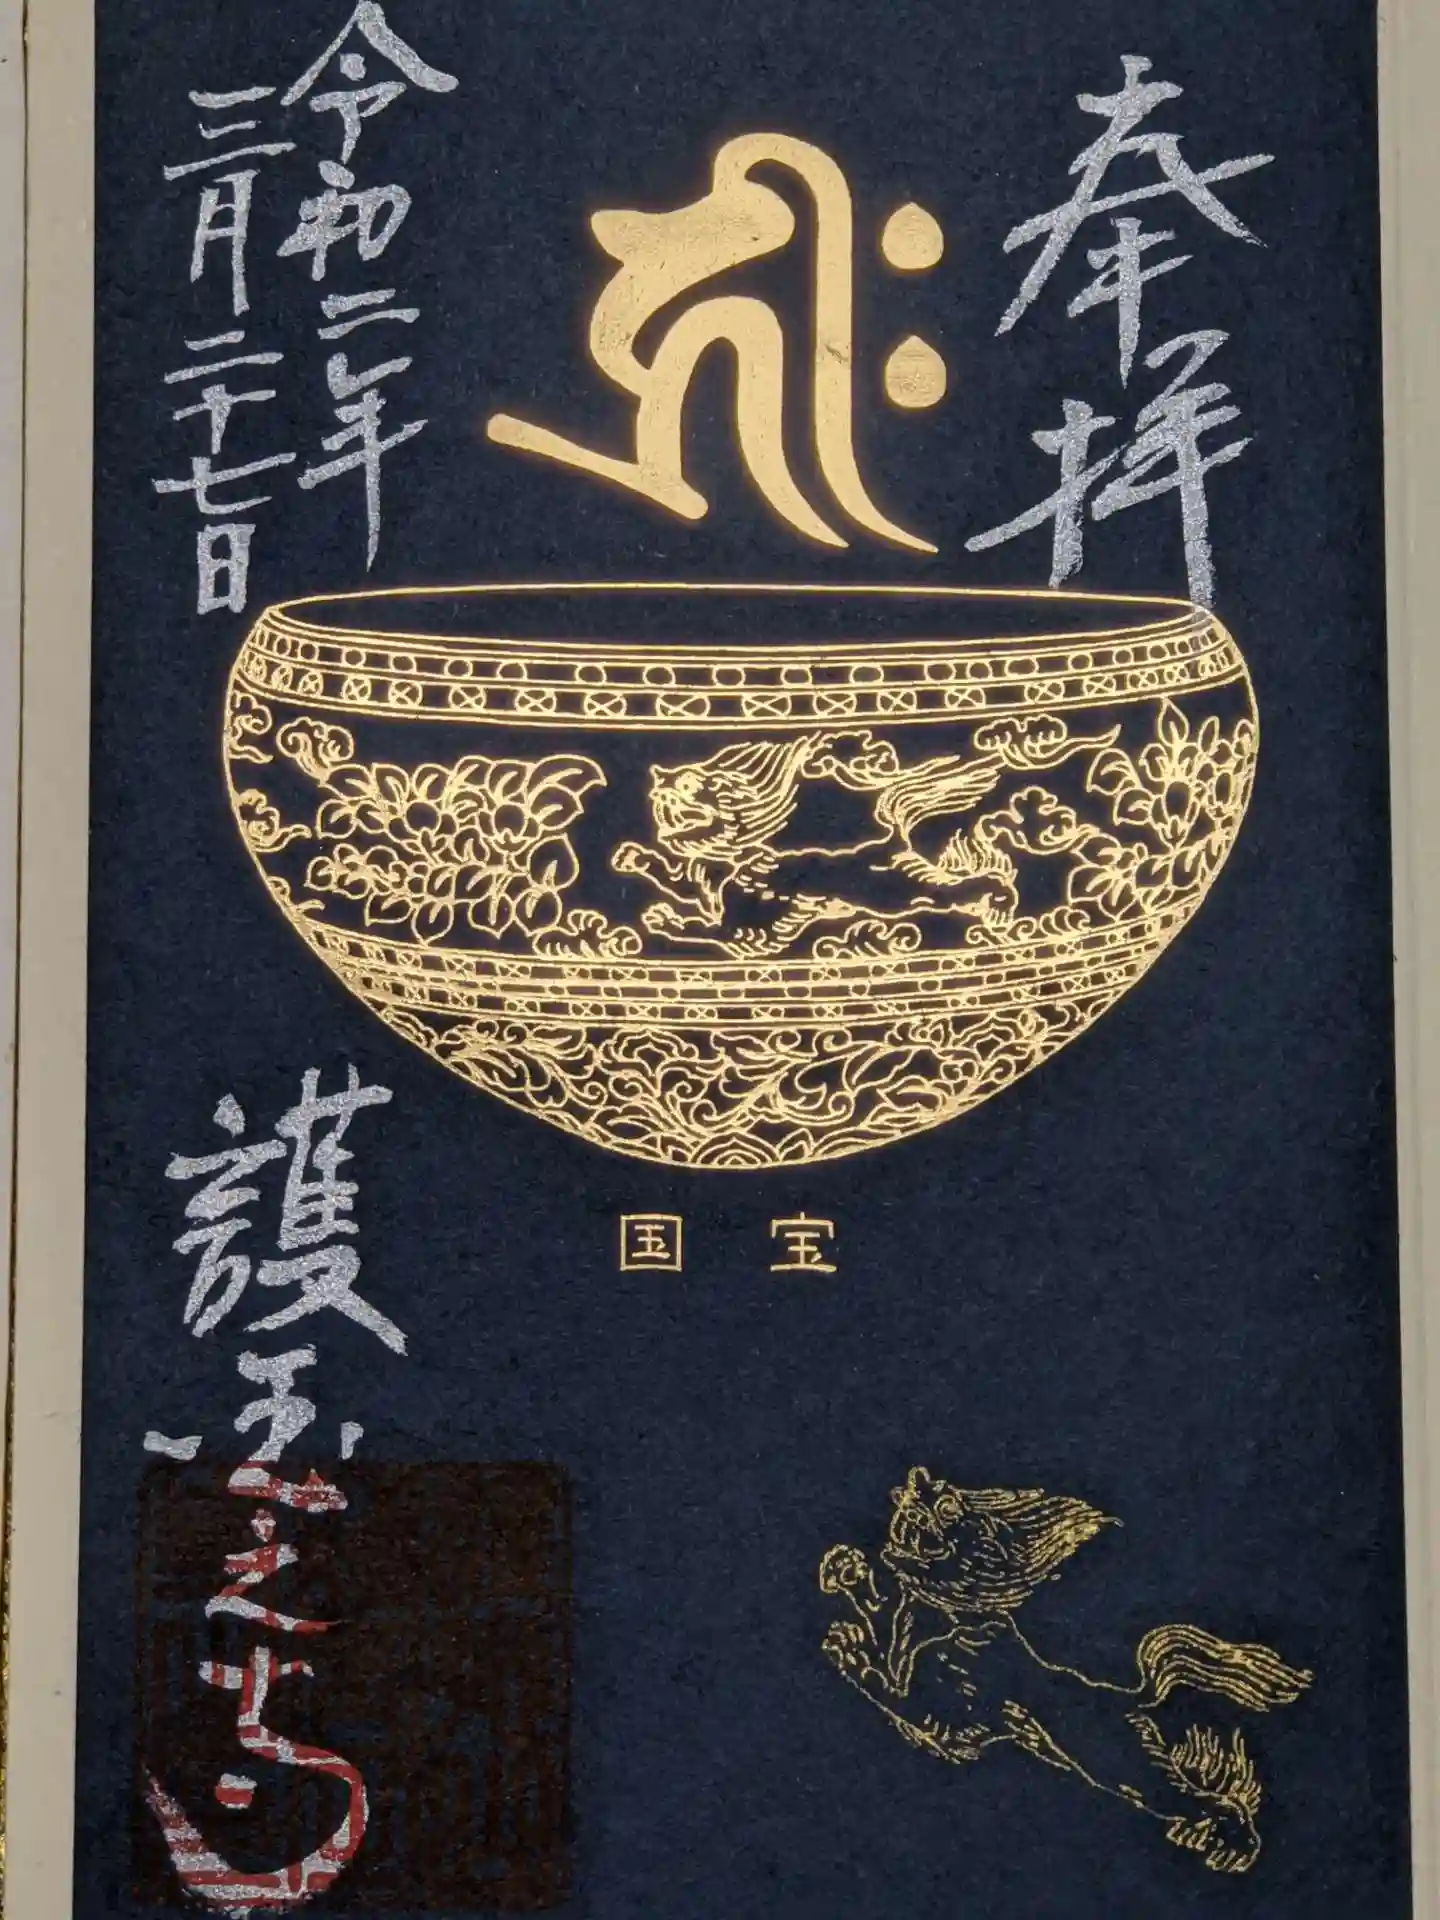 奉拝
𑖮𑖿𑖨𑖱𑖾
国宝
令和二年
三月二十七日
護国之寺